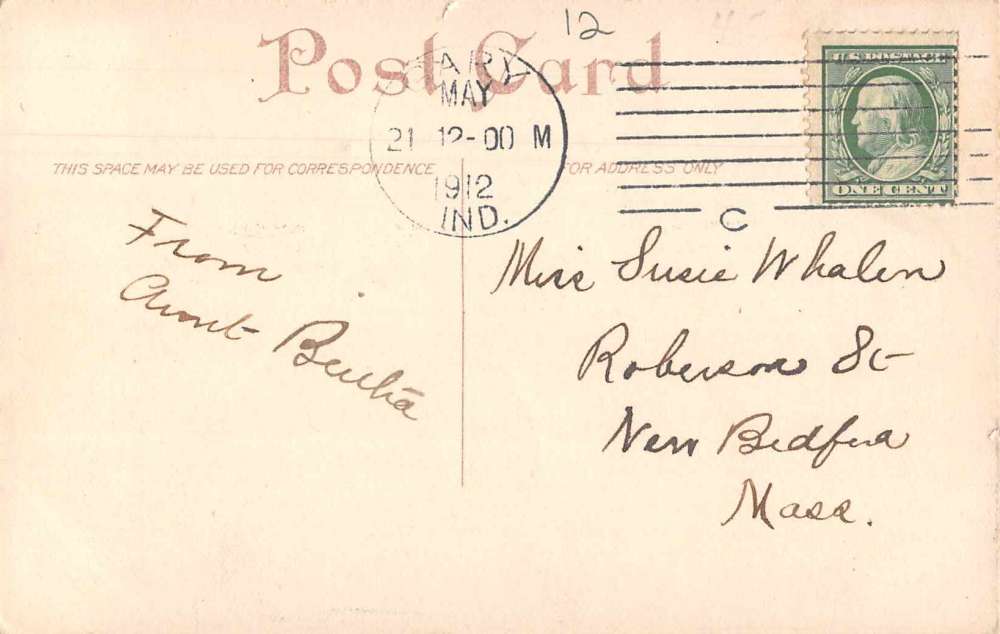 12
Post Card
GARY
MAY
21 12-00 M
1912
IND.
C
U.S. POSTAGE
ONE CENT
THIS SPACE MAY BE USED FOR CORRESPONDENCE
FOR ADDRESS ONLY
From
Aunt Bertha
Miss Susie Whalen
Roberson St
New Bedford
Mass.